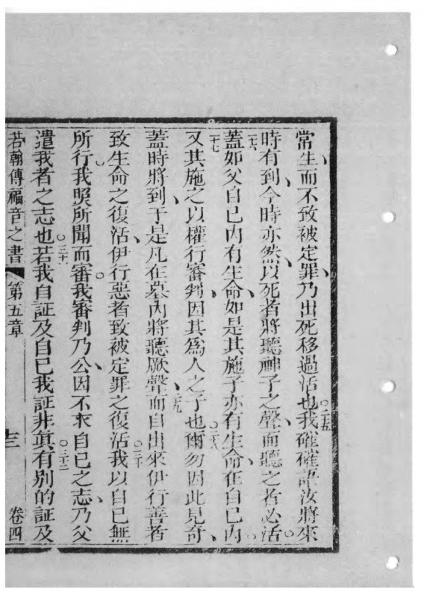 常生而不致被定罪乃出死移過活也我確確語汝將來
二五
時有到今時亦然以死者將聽神子之聲而聽之者必活
二六
蓋如父自己內有生命如是其施子亦有生命在自己內
二七
又其施之以權行審判因其為人之子也爾勿因此見奇
二八
二九
蓋時將到于是凡在墓內將聽厥聲而自出來伊行善者
致生命之復活伊行惡者致被定罪之復活我以自己無
三十
所行我照所聞而審我審判乃公因不求自己之志乃父
遣我者之志也若我自証及自己我証非真有別的証及
三十一
三十二
若翰傳福音之書 第五章 卷四